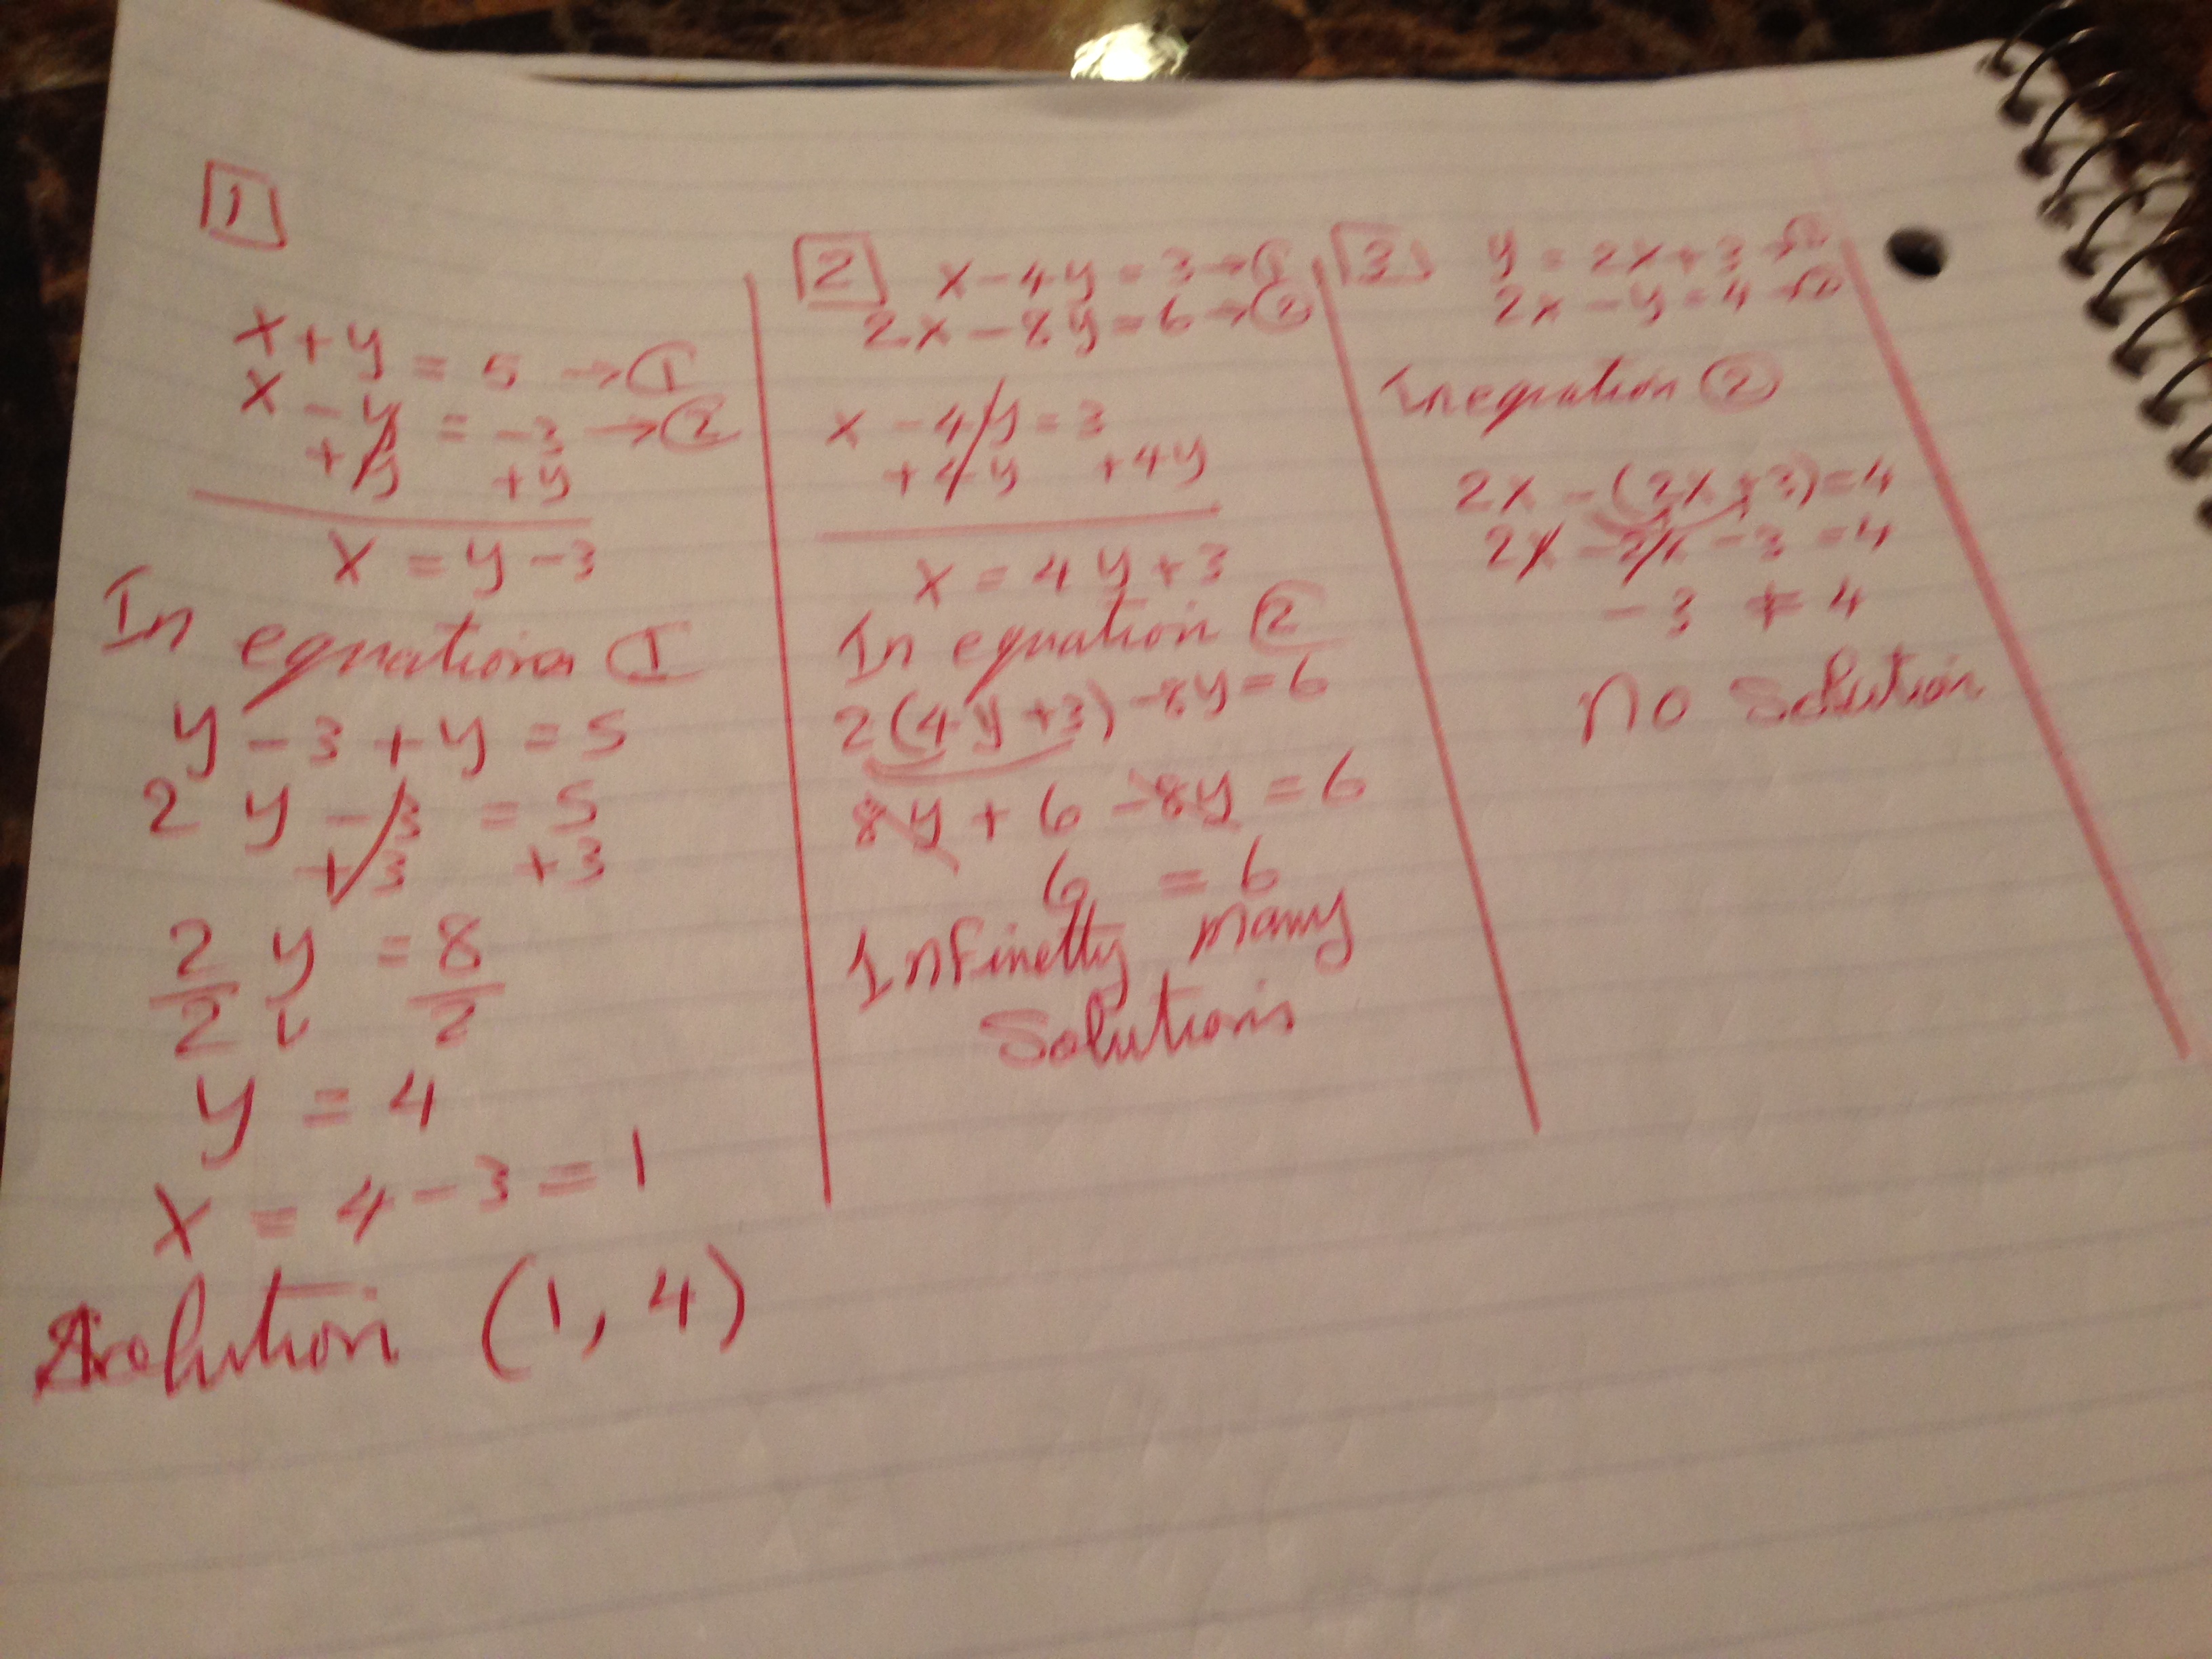 1
x + y = 5 → ①
x - y = -3 → ②
+y +y
x = y - 3
In equation ①
y - 3 + y = 5
2 y - 3 = 5
+3 +3
2 y = 8
2 2
y = 4
x = 4 - 3 = 1
Solution (1, 4)
2 x - 4y = 3 → ①
2x - 8y = 6 → ②
x - 4y = 3
+4y +4y
x = 4y + 3
In equation ②
2(4y + 3) - 8y = 6
8y + 6 - 8y = 6
6 = 6
Infinetly many
Solutions
3 y = 2x + 3 →
2x - y = 4 →
In equation ②
2x - (2x + 3) = 4
2x - 2x - 3 = 4
-3 ≠ 4
No Solution